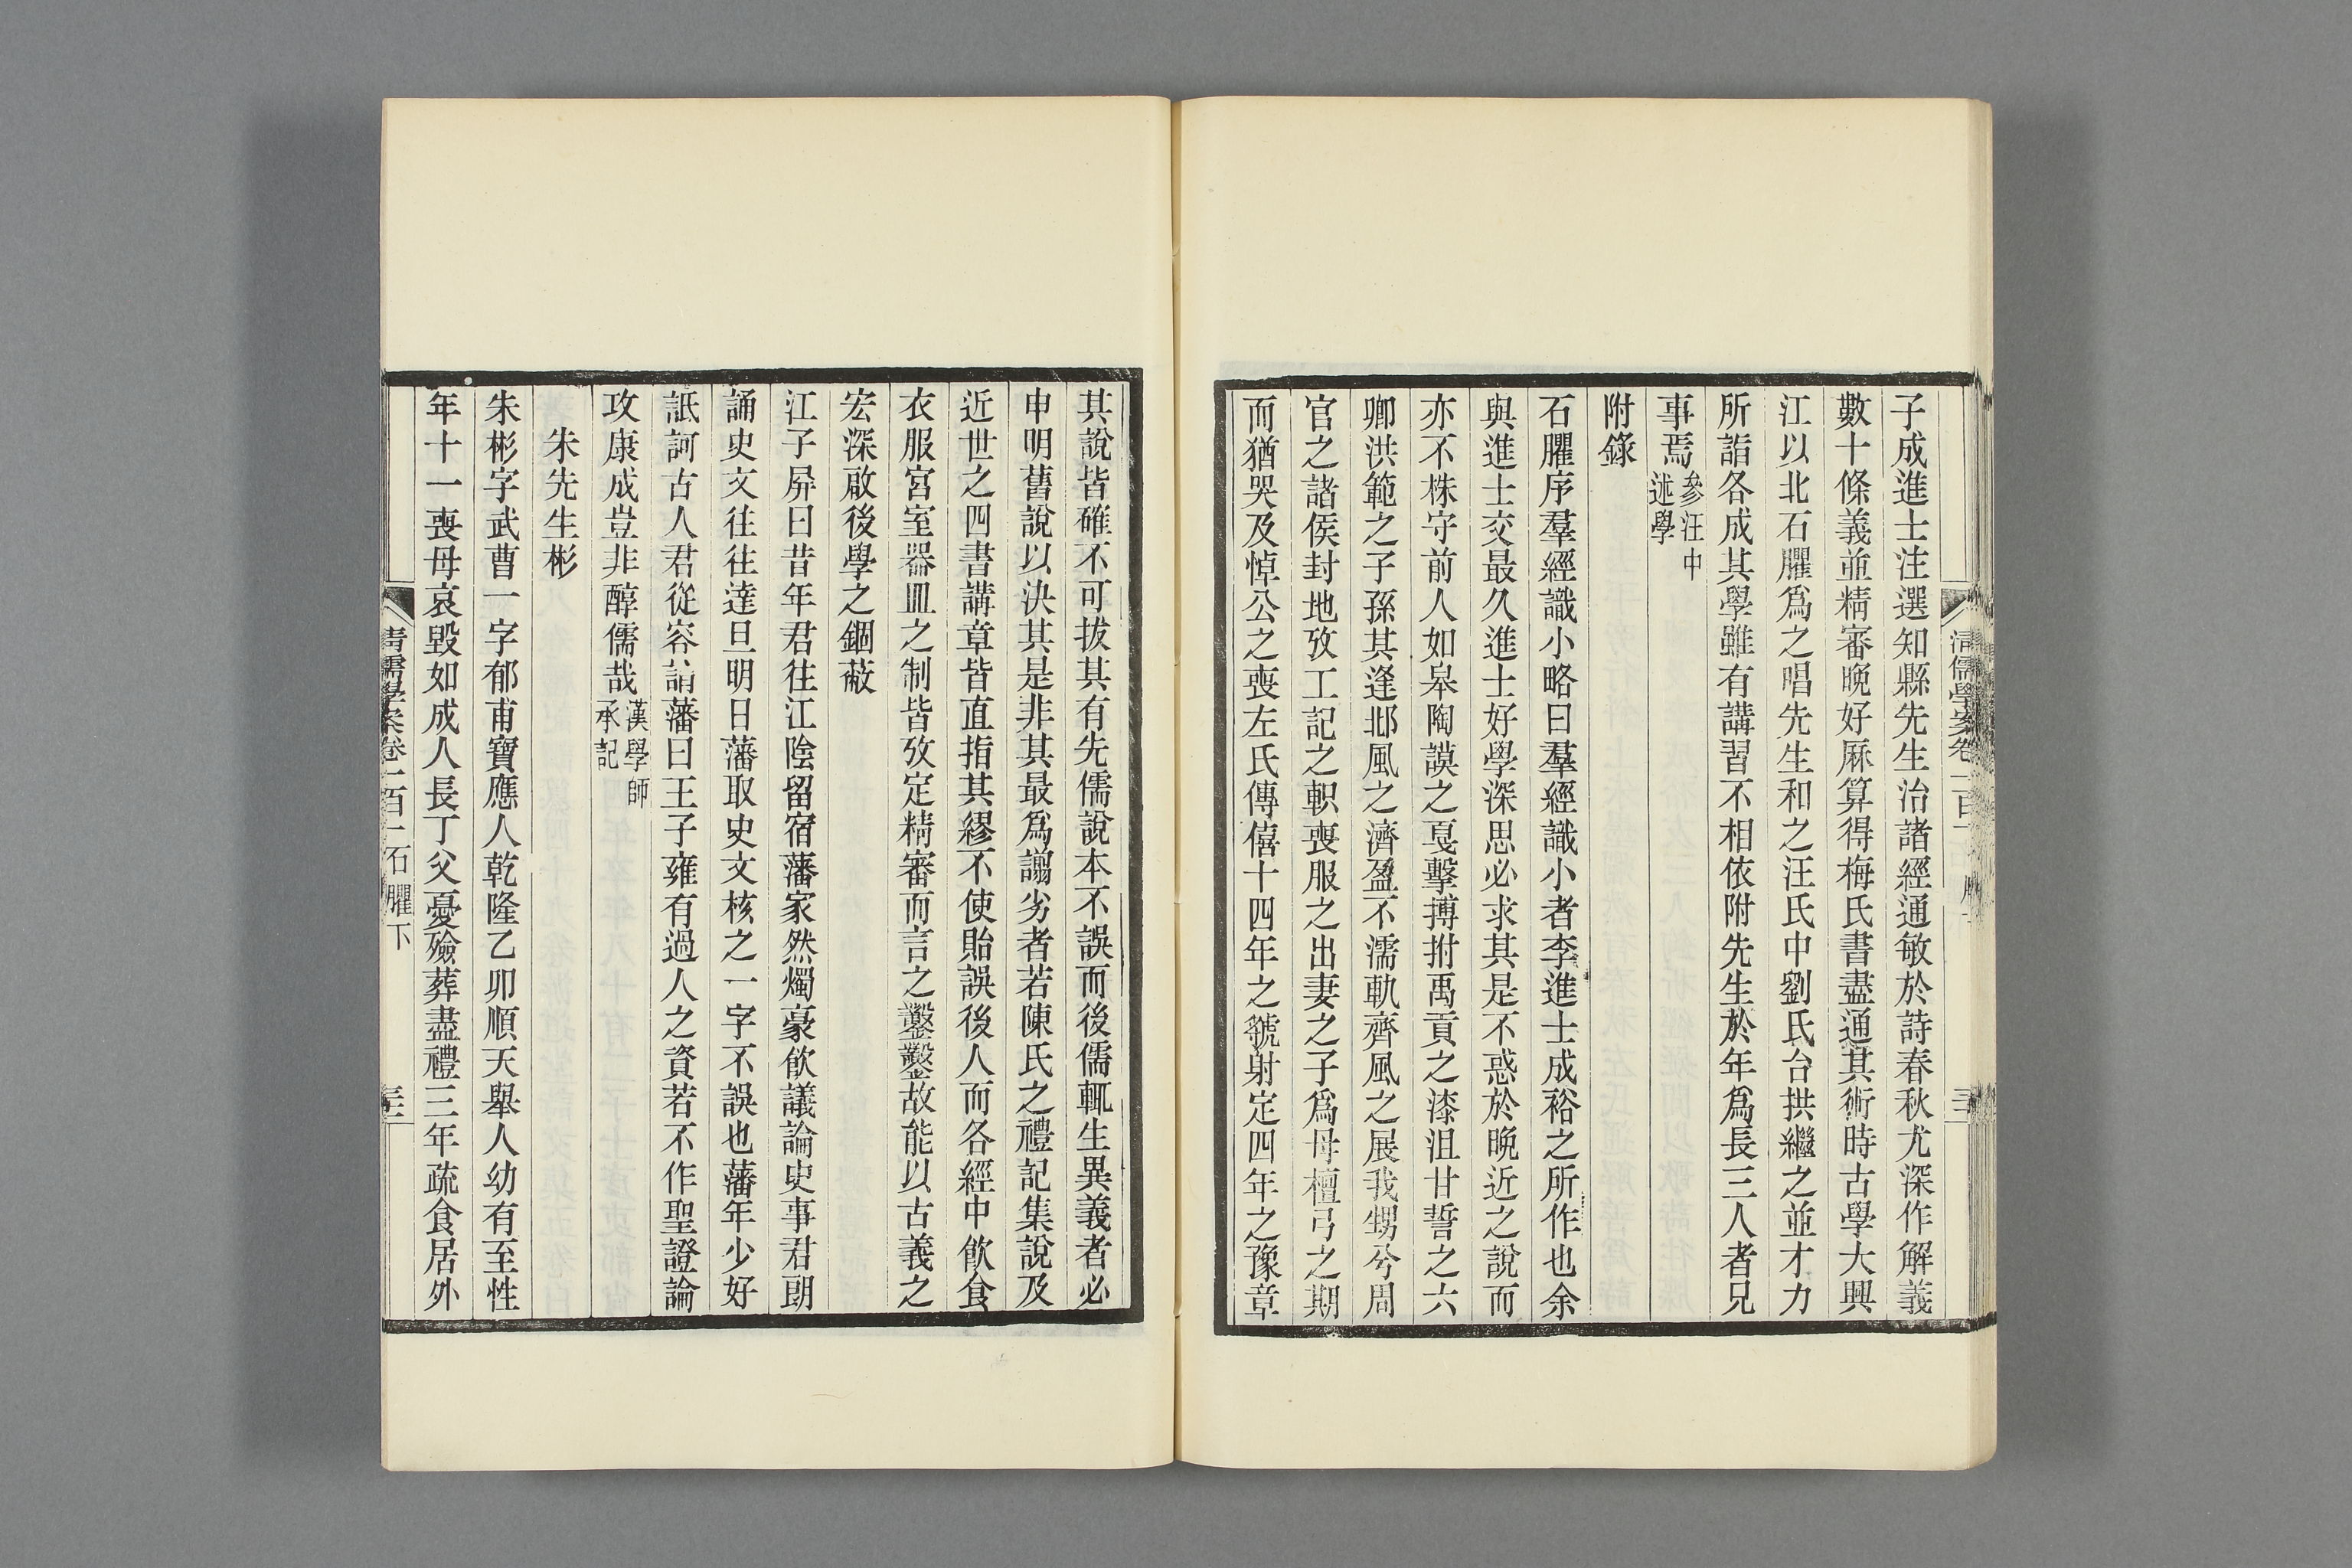 子成進士注選知縣先生治諸經通敏於詩春秋尤深作解義
數十條義並精審晚好厤算得梅氏書盡通其術時古學大興
江以北石臞爲之唱先生和之汪氏中劉氏台拱繼之並才力
所詣各成其學雖有講習不相依附先生於年爲長三人者兄
事焉參汪中
述學
附錄
石臞序羣經識小略曰羣經識小者李進士成裕之所作也余
與進士交最久進士好學深思必求其是不惑於晚近之說而
亦不株守前人如皋陶謨之戛擊搏拊禹貢之漆沮甘誓之六
卿洪範之子孫其逢邶風之濟盈不濡軌齊風之展我甥兮周
官之諸侯封地攷工記之軹喪服之出妻之子爲母檀弓之期
而猶哭及悼公之喪左氏傳僖十四年之虢射定四年之豫章
其說皆確不可拔其有先儒說本不誤而後儒輒生異義者必
申明舊說以決其是非其最爲謭劣者若陳氏之禮記集說及
近世之四書講章皆直指其繆不使貽誤後人而各經中飲食
衣服宮室器皿之制皆攷定精審而言之鑿鑿故能以古義之
宏深啟後學之錮蔽
江子屏曰昔年君往江陰留宿藩家然燭豪飲議論史事君朗
誦史文往往達旦明日藩取史文核之一字不誤也藩年少好
詆訶古人君從容謂藩曰王子雍有過人之資若不作聖證論
攻康成豈非醇儒哉漢學師
承記
朱先生彬
朱彬字武曹一字郁甫寶應人乾隆乙卯順天舉人幼有至性
年十一喪母哀毀如成人長丁父憂殮葬盡禮三年疏食居外
清儒學案卷一百一石臞下